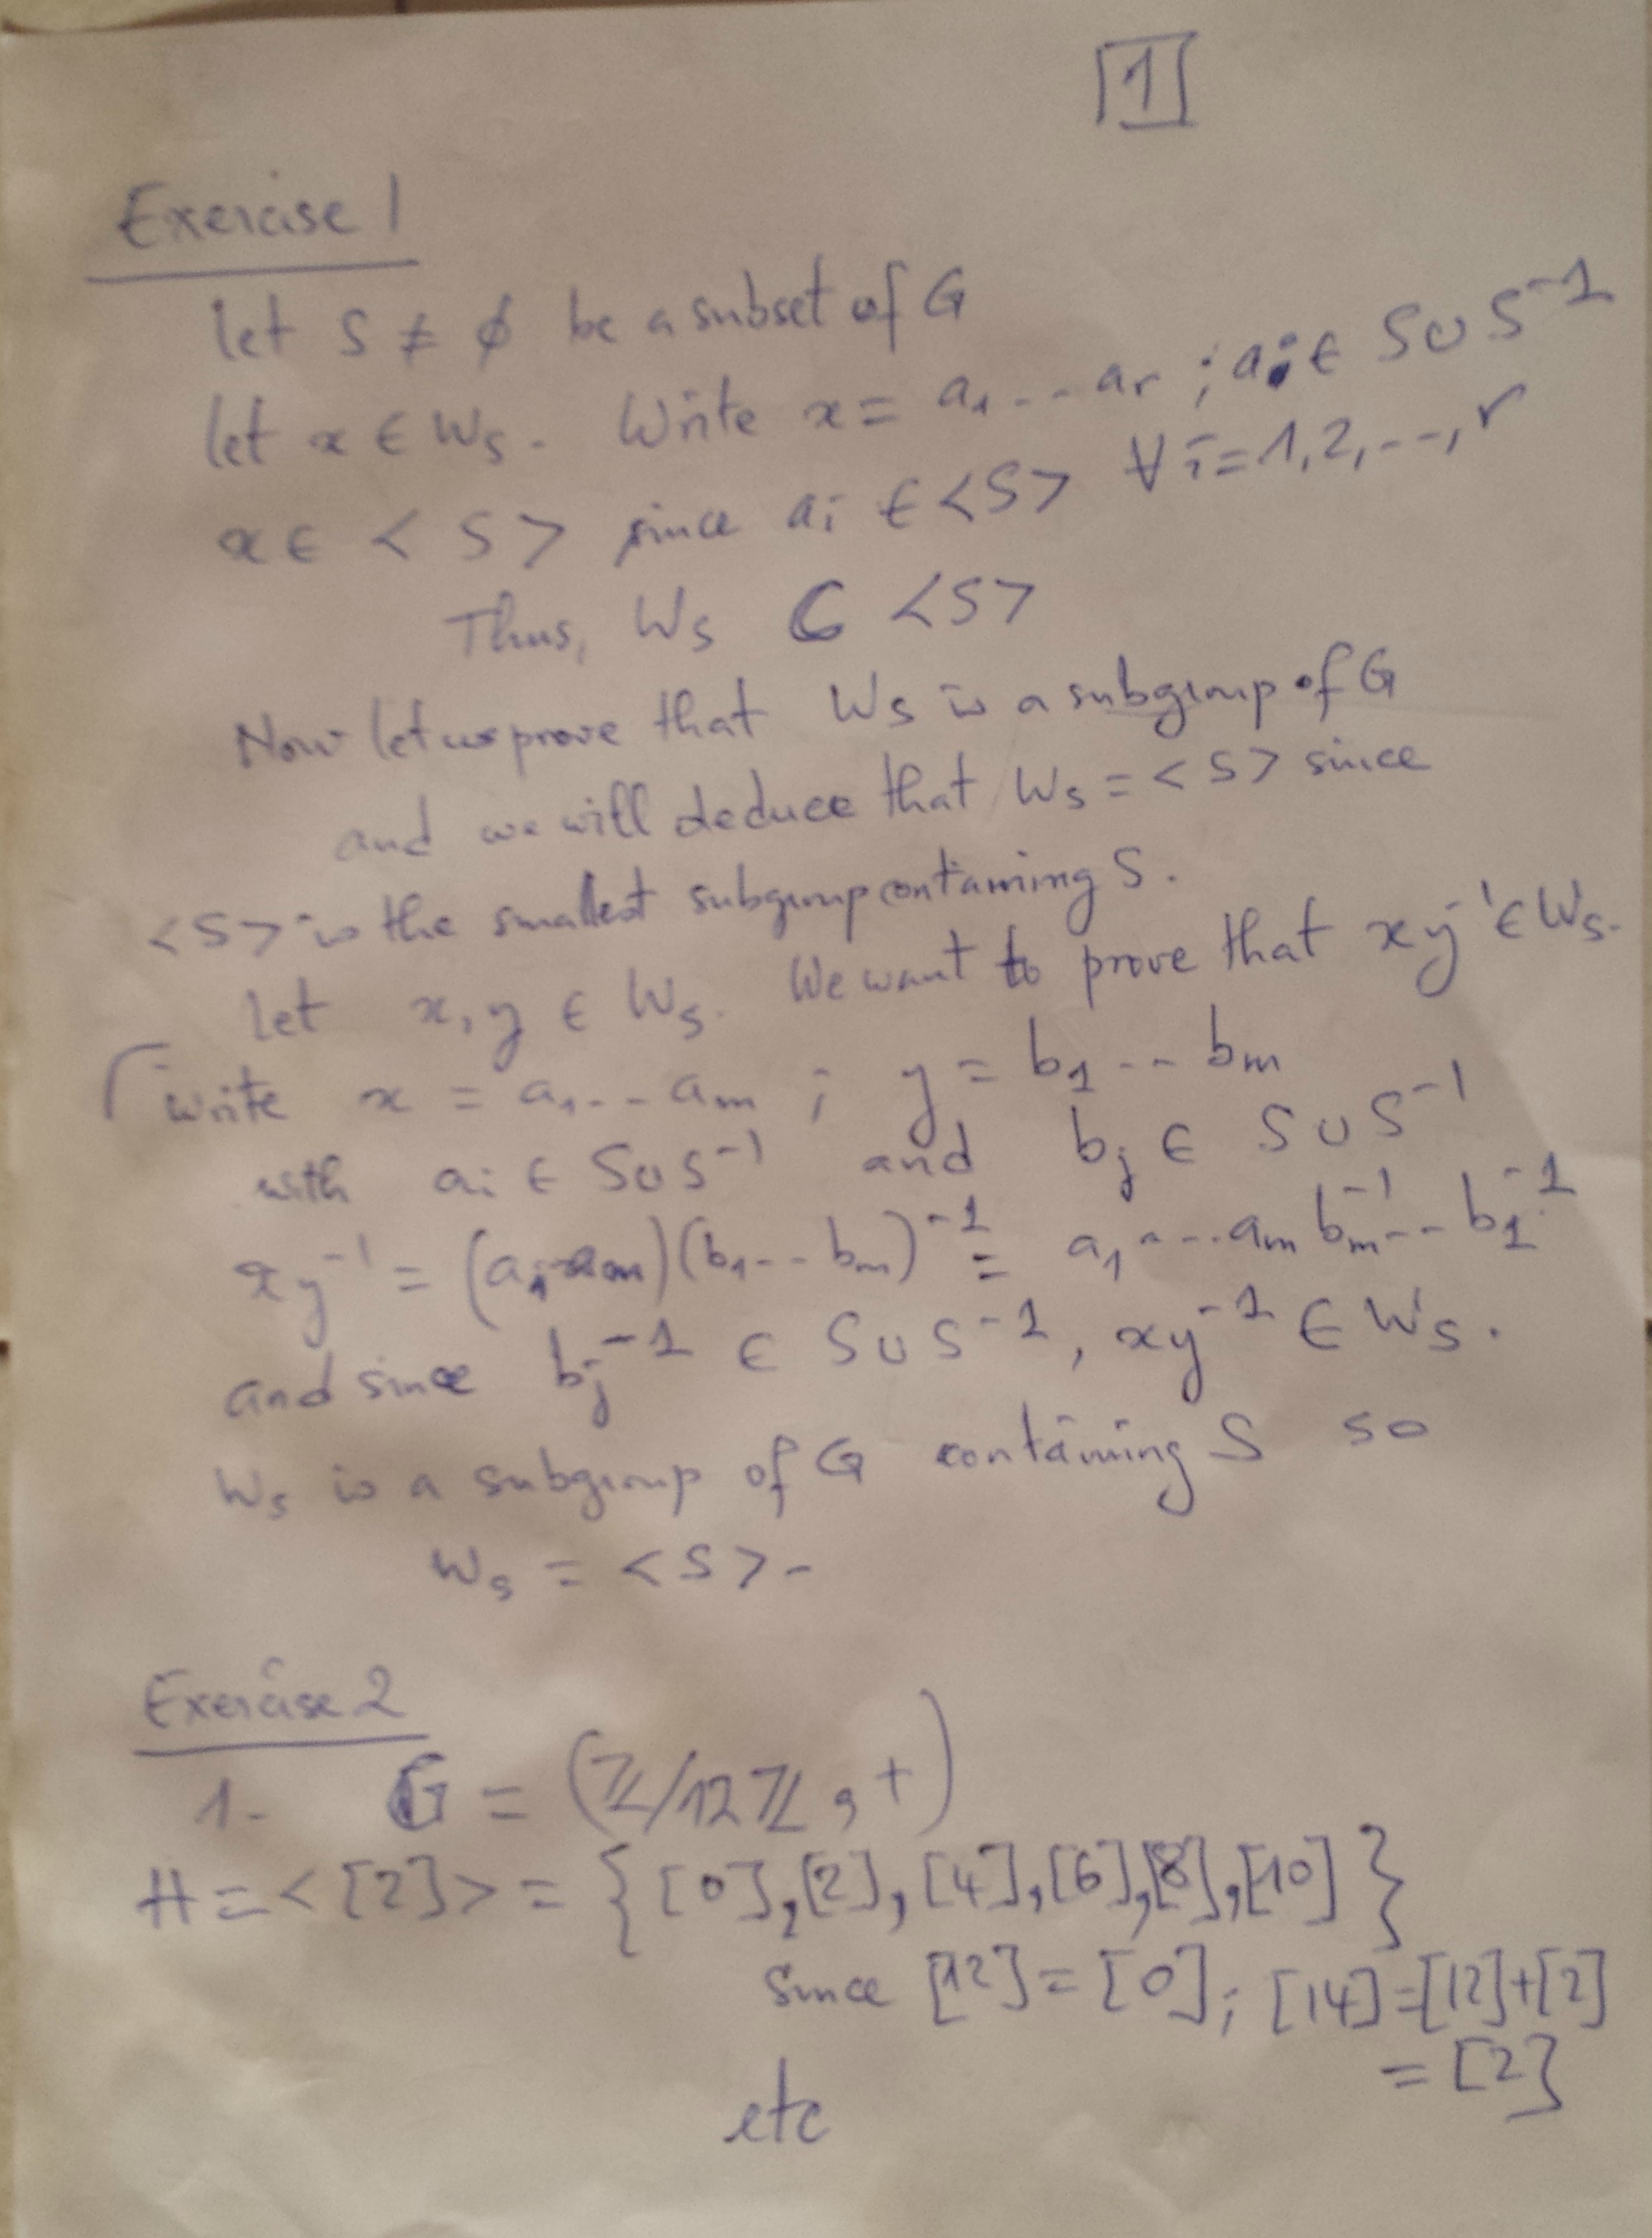 1
Exercise 1
let S ≠ ∅ be a subset of G
let x ∈ W_S. Write x = a_1 -- a_r ; a_i ∈ S ∪ S^{-1}
x ∈ < S > since a_i ∈ <S> ∀ i = 1, 2, --, r
Thus, W_S ⊂ <S>
Now let us prove that W_S is a subgroup of G
and we will deduce that W_S = < S > since
<S> is the smallest subgroup containing S.
Let x, y ∈ W_S. We want to prove that xy^{-1} ∈ W_S.
write x = a_1 -- a_m ; y = b_1 -- b_m
with a_i ∈ S ∪ S^{-1} and b_j ∈ S ∪ S^{-1}
xy^{-1} = (a_1 -- a_m)(b_1 -- b_m)^{-1} = a_1 --- a_m b_m^{-1} -- b_1^{-1}
and since b_j^{-1} ∈ S ∪ S^{-1}, xy^{-1} ∈ W_S.
W_S is a subgroup of G containing S so
W_S = < S > -
Exercise 2
1- G = (ℤ/12ℤ, +)
H = < [2] > = { [0], [2], [4], [6], [8], [10] }
Since [12] = [0]; [14] = [12] + [2]
= [2]
etc